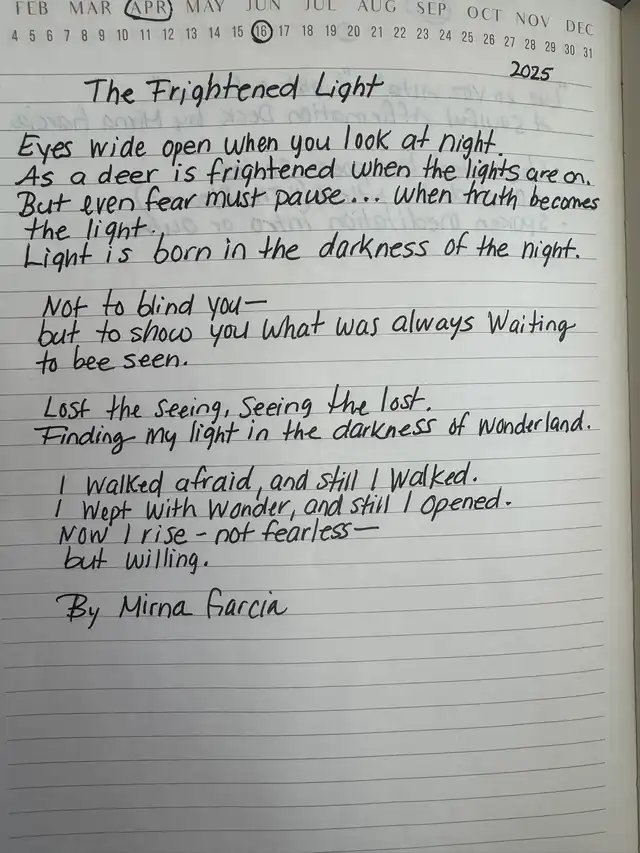 FEB MAR APR MAY JUN JUL AUG SEP OCT NOV DEC
4 5 6 7 8 9 10 11 12 13 14 15 16 17 18 19 20 21 22 23 24 25 26 27 28 29 30 31
2025
The Frightened Light
Eyes wide open when you look at night.
As a deer is frightened when the lights are on.
But even fear must pause... when truth becomes
the light.
Light is born in the darkness of the night.
Not to blind you—
but to show you what was always Waiting
to bee seen.
Lost the seeing, Seeing the lost.
Finding my light in the darkness of wonderland.
I walked afraid, and still I walked.
I wept with wonder, and still I opened.
Now I rise - not fearless—
but willing.
By Mirna Garcia